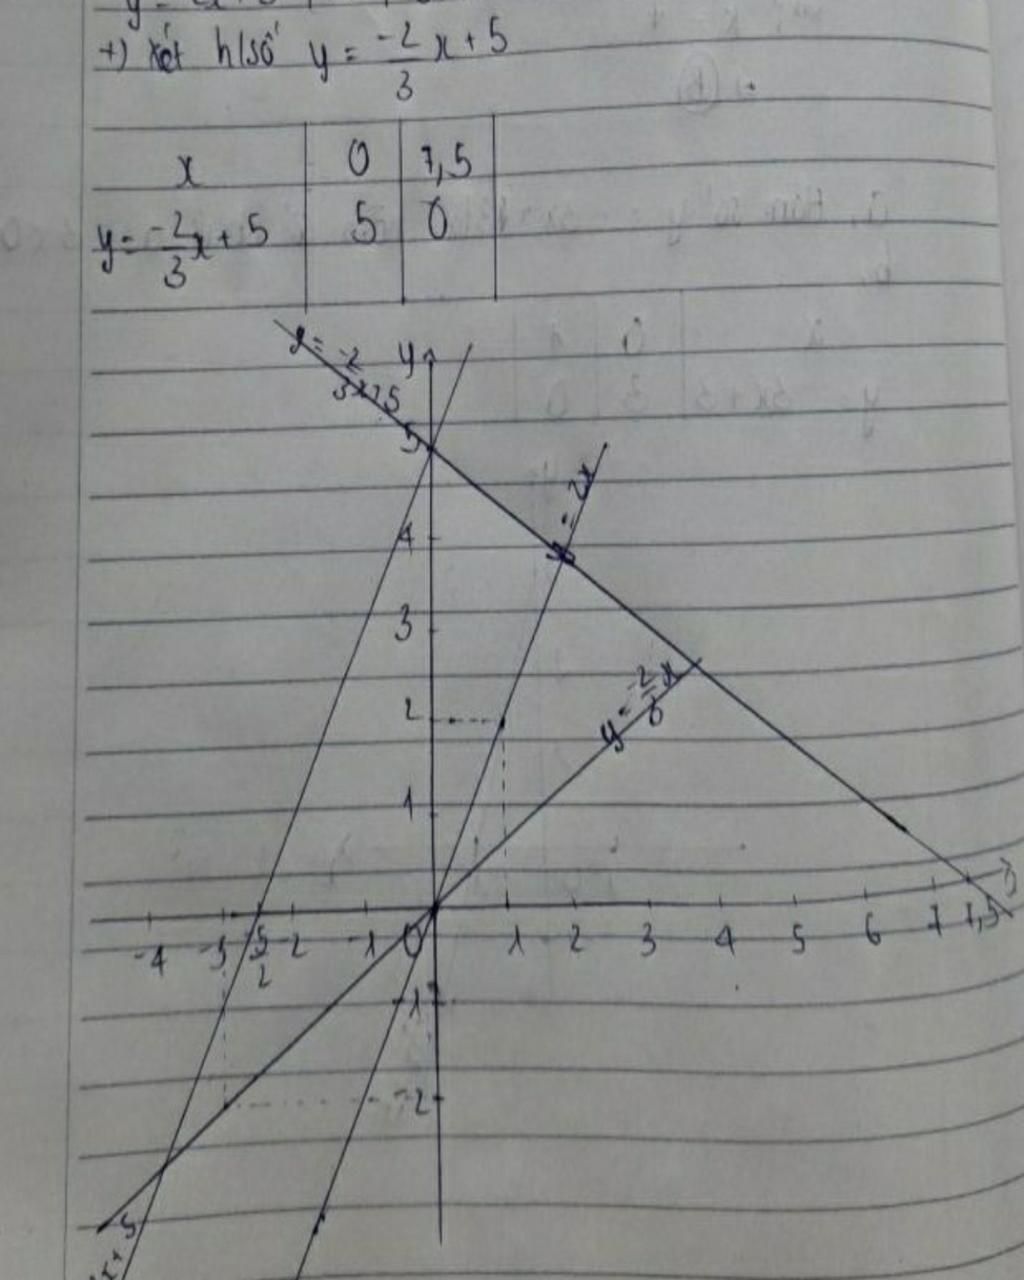 +) Xét h/số y = -2/3 x + 5
x 0 7,5
y = -2/3 x + 5 5 0
y = -2/3 x + 5
y
5
y = 2x
4
3
y = -2/3 x
2
1
-4 -3 -5/2 -2 -1 0 1 2 3 4 5 6 7 7,5
-1
-2
x + 5